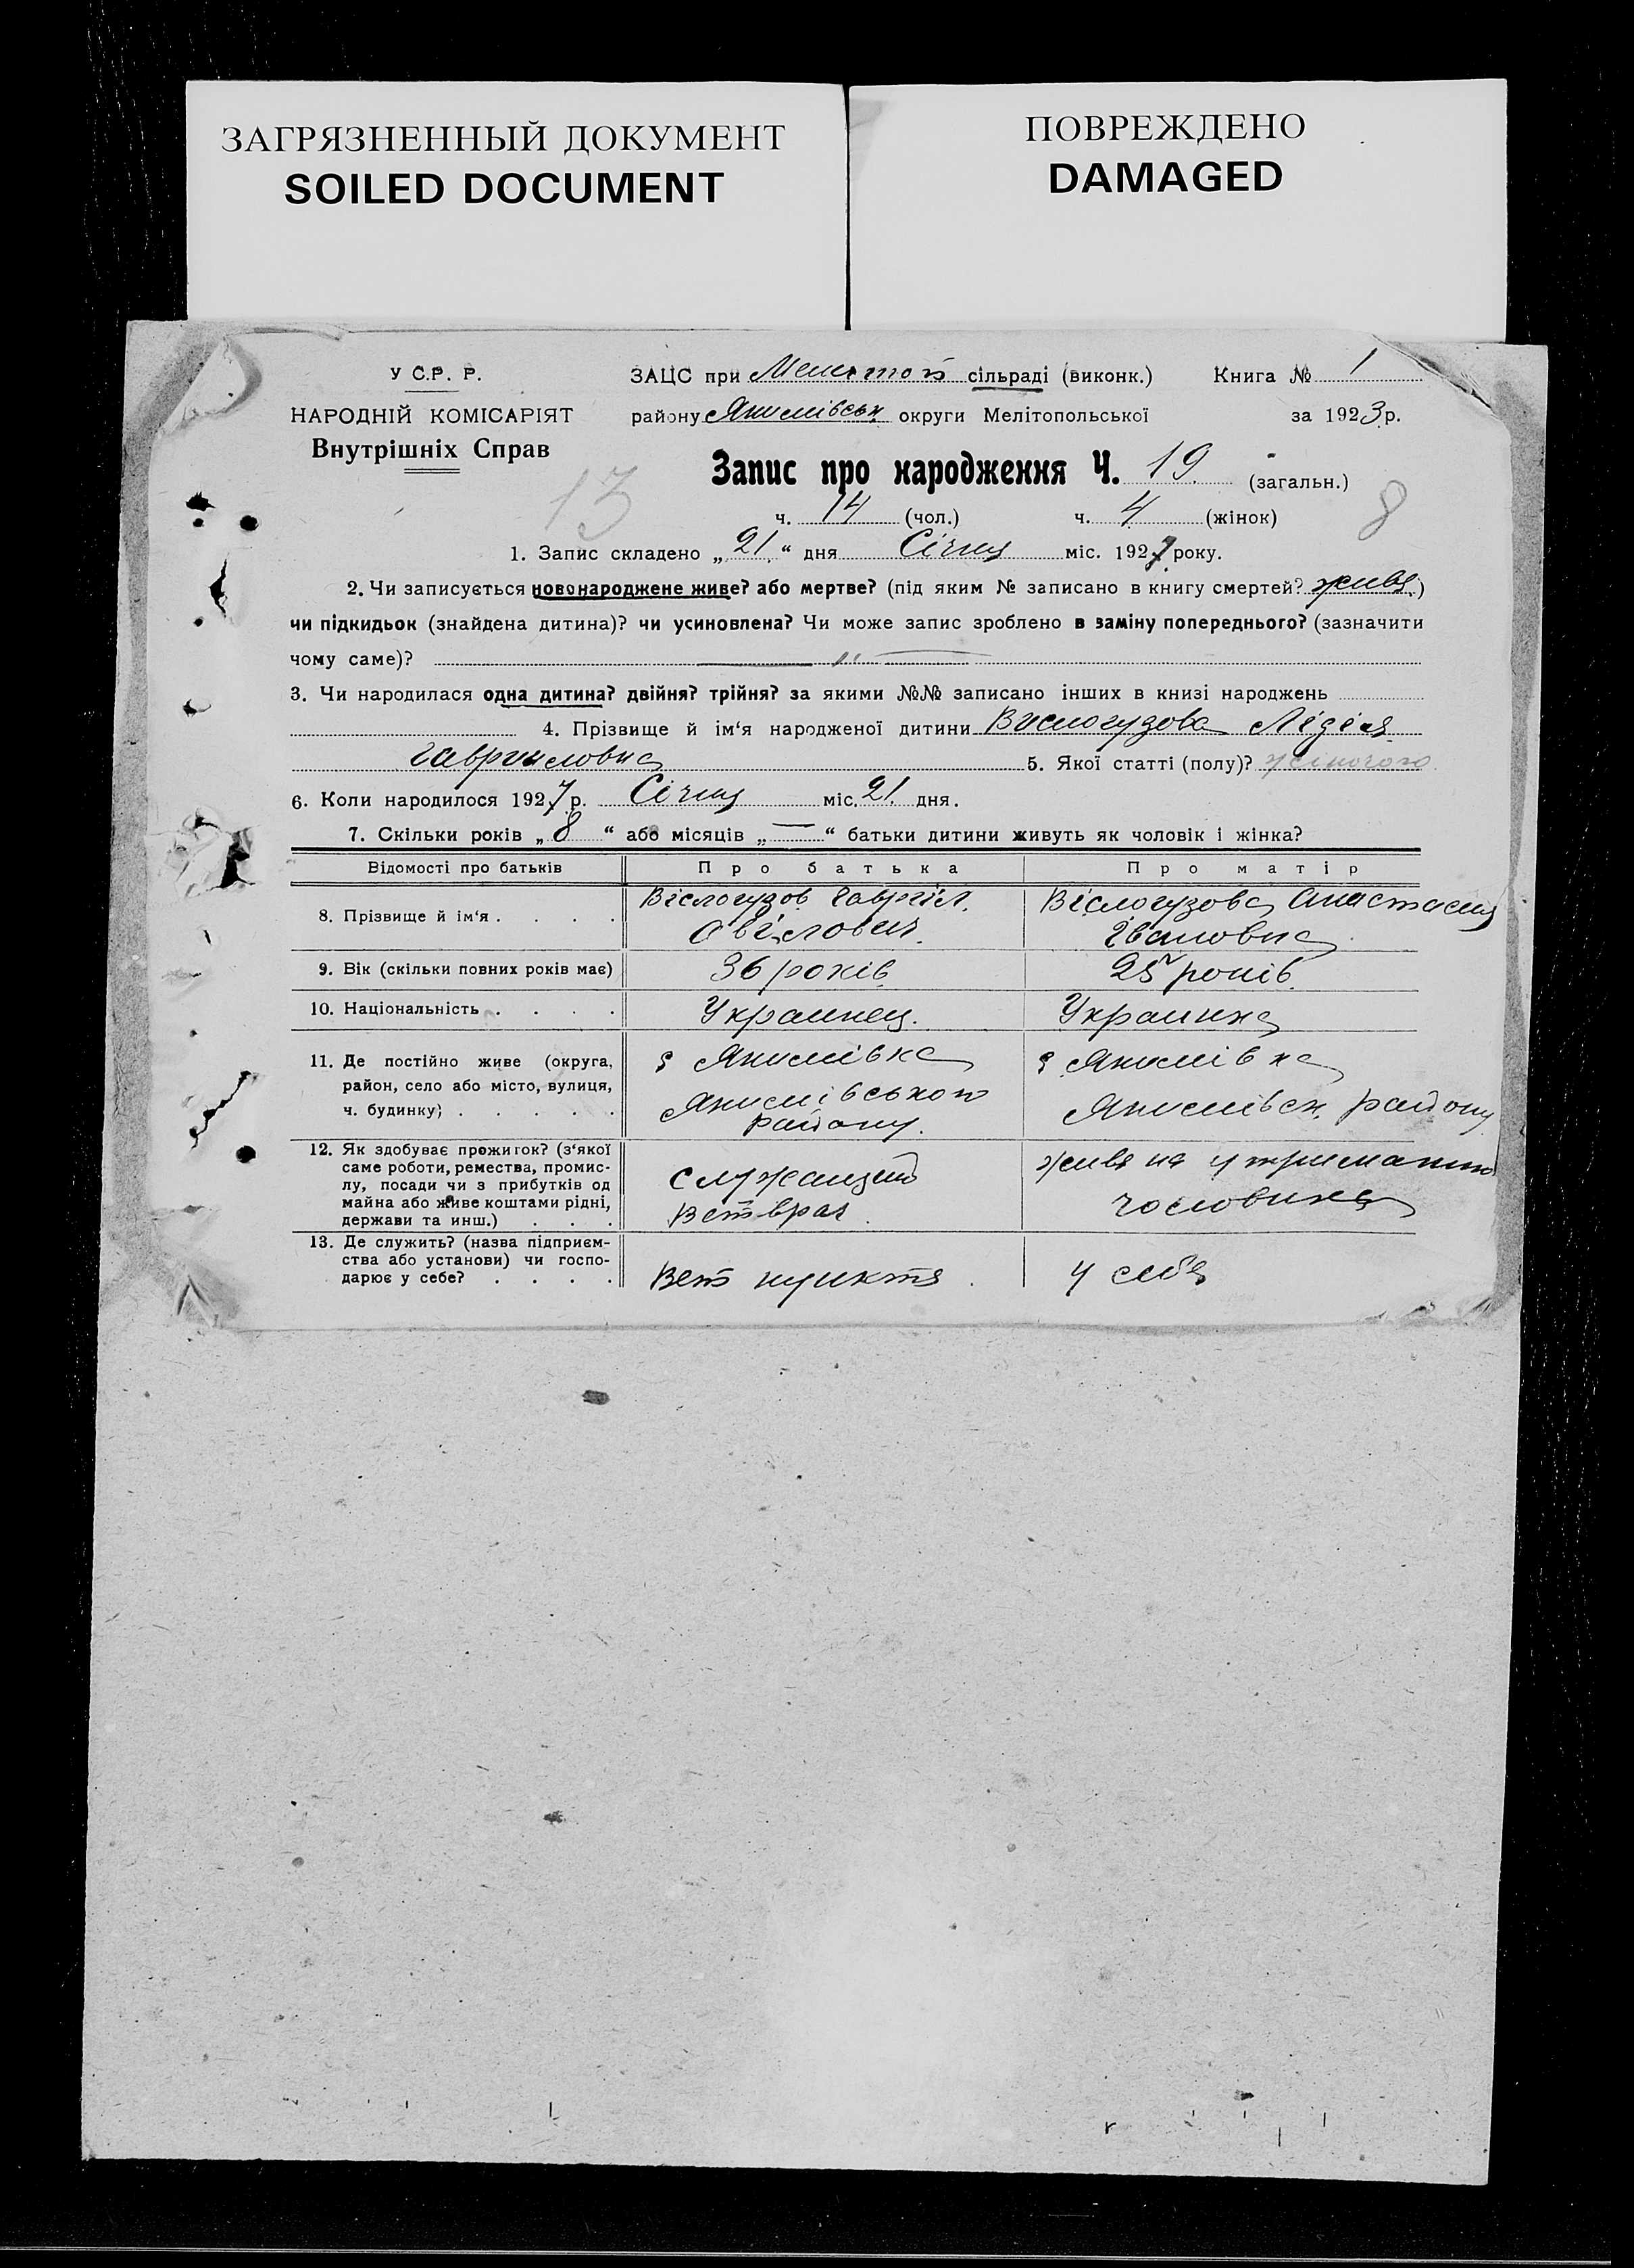 ЗАГРЯЗНЕННЫЙ ДОКУМЕНТ
SOILED DOCUMENT
ПОВРЕЖДЕНО
DAMAGED
У С.Р. Р.
НАРОДНІЙ КОМІСАРІЯТ
Внутрішніх Справ
ЗАЦС при сільраді (виконк.) Книга № 1
району Якимівськ округи Мелітопольської за 1923 р.
Запис про народження Ч. 19 (загальн.)
13
ч. 14 (чол.) ч. 4 (жінок) 8
1. Запис складено „21“ дня Січня міс. 1927 року.
2. Чи записується новонароджене живе? або мертве? (під яким № записано в книгу смертей? живе)
чи підкидьок (знайдена дитина)? чи усиновлена? Чи може запис зроблено в заміну попереднього? (зазначити
чому саме)? — „ —
3. Чи народилася одна дитина? двійня? трійня? за якими №№ записано інших в книзі народжень
4. Прізвище й ім‘я народженої дитини Віслогузова Лідія
Гавриловна 5. Якої статті (полу)? жіночого
6. Коли народилося 1927 р. Січня міс. 21 дня.
7. Скільки років „8“ або місяців „—“ батьки дитини живуть як чоловік і жінка?
Відомості про батьків Про батька Про матір
8. Прізвище й ім‘я . . . . Віслогузов Гавріїл Віслогузова Анастасия
Івановна
9. Вік (скільки повних років має) 36 років 25 років
10. Національність . . . . Украинец. Украинка
11. Де постійно живе (округа, с Якимівка с Якимівка
район, село або місто, вулиця, Якимівського Якимівск. району
ч. будинку) . . . . . району.
12. Як здобуває прожиток? (з‘якої живе на утриманню
саме роботи, ремества, промис- служащий
лу, посади чи з прибутків од чоловика
майна або живе коштами рідні, Ветврач
держави та инш.) . . .
13. Де служить? (назва підприєм-
ства або установи) чи госпо-
дарює у себе? . . . . Вет пункте У себе